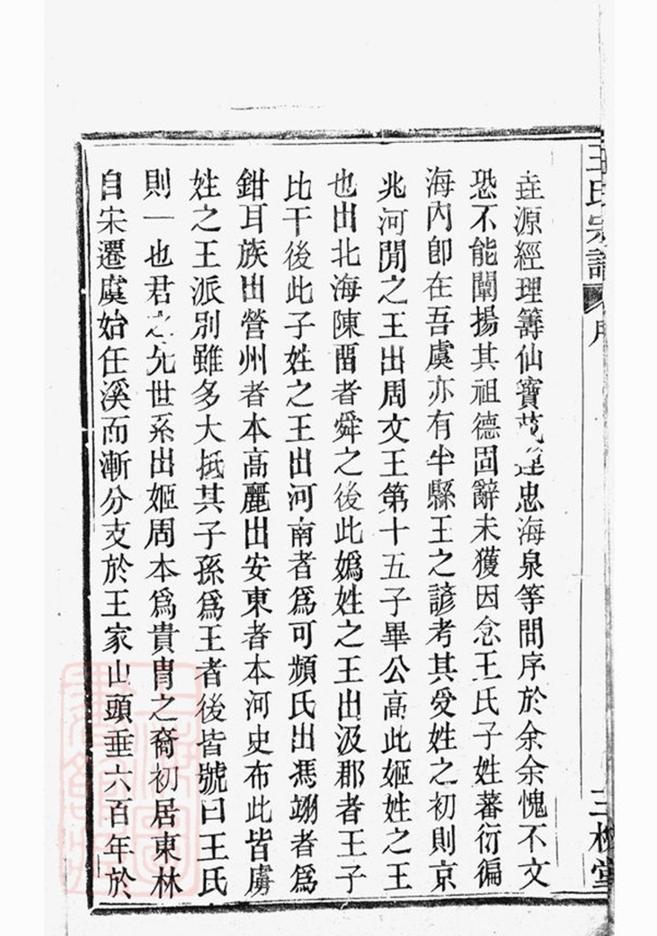 王氏宗譜 序 三槐堂
垚源經理籌仙寶茂達忠海泉等問序於余余愧不文
恐不能闡揚其祖德固辭未獲因念王氏子姓蕃衍徧
海內卽在吾虞亦有半縣王之諺考其受姓之初則京
兆河閒之王出周文王第十五子畢公高此姬姓之王
也出北海陳畱者舜之後此嬀姓之王出汲郡者王子
比干後此子姓之王出河南者爲可頻氏出馮翊者爲
鉗耳族出營州者本高麗出安東者本河史布此皆虜
姓之王派別雖多大抵其子孫爲王者後皆號曰王氏
則一也君之先世系出姬周本爲貴胄之裔初居東林
自宋遷虞始任溪而漸分支於王家山頭垂六百年於